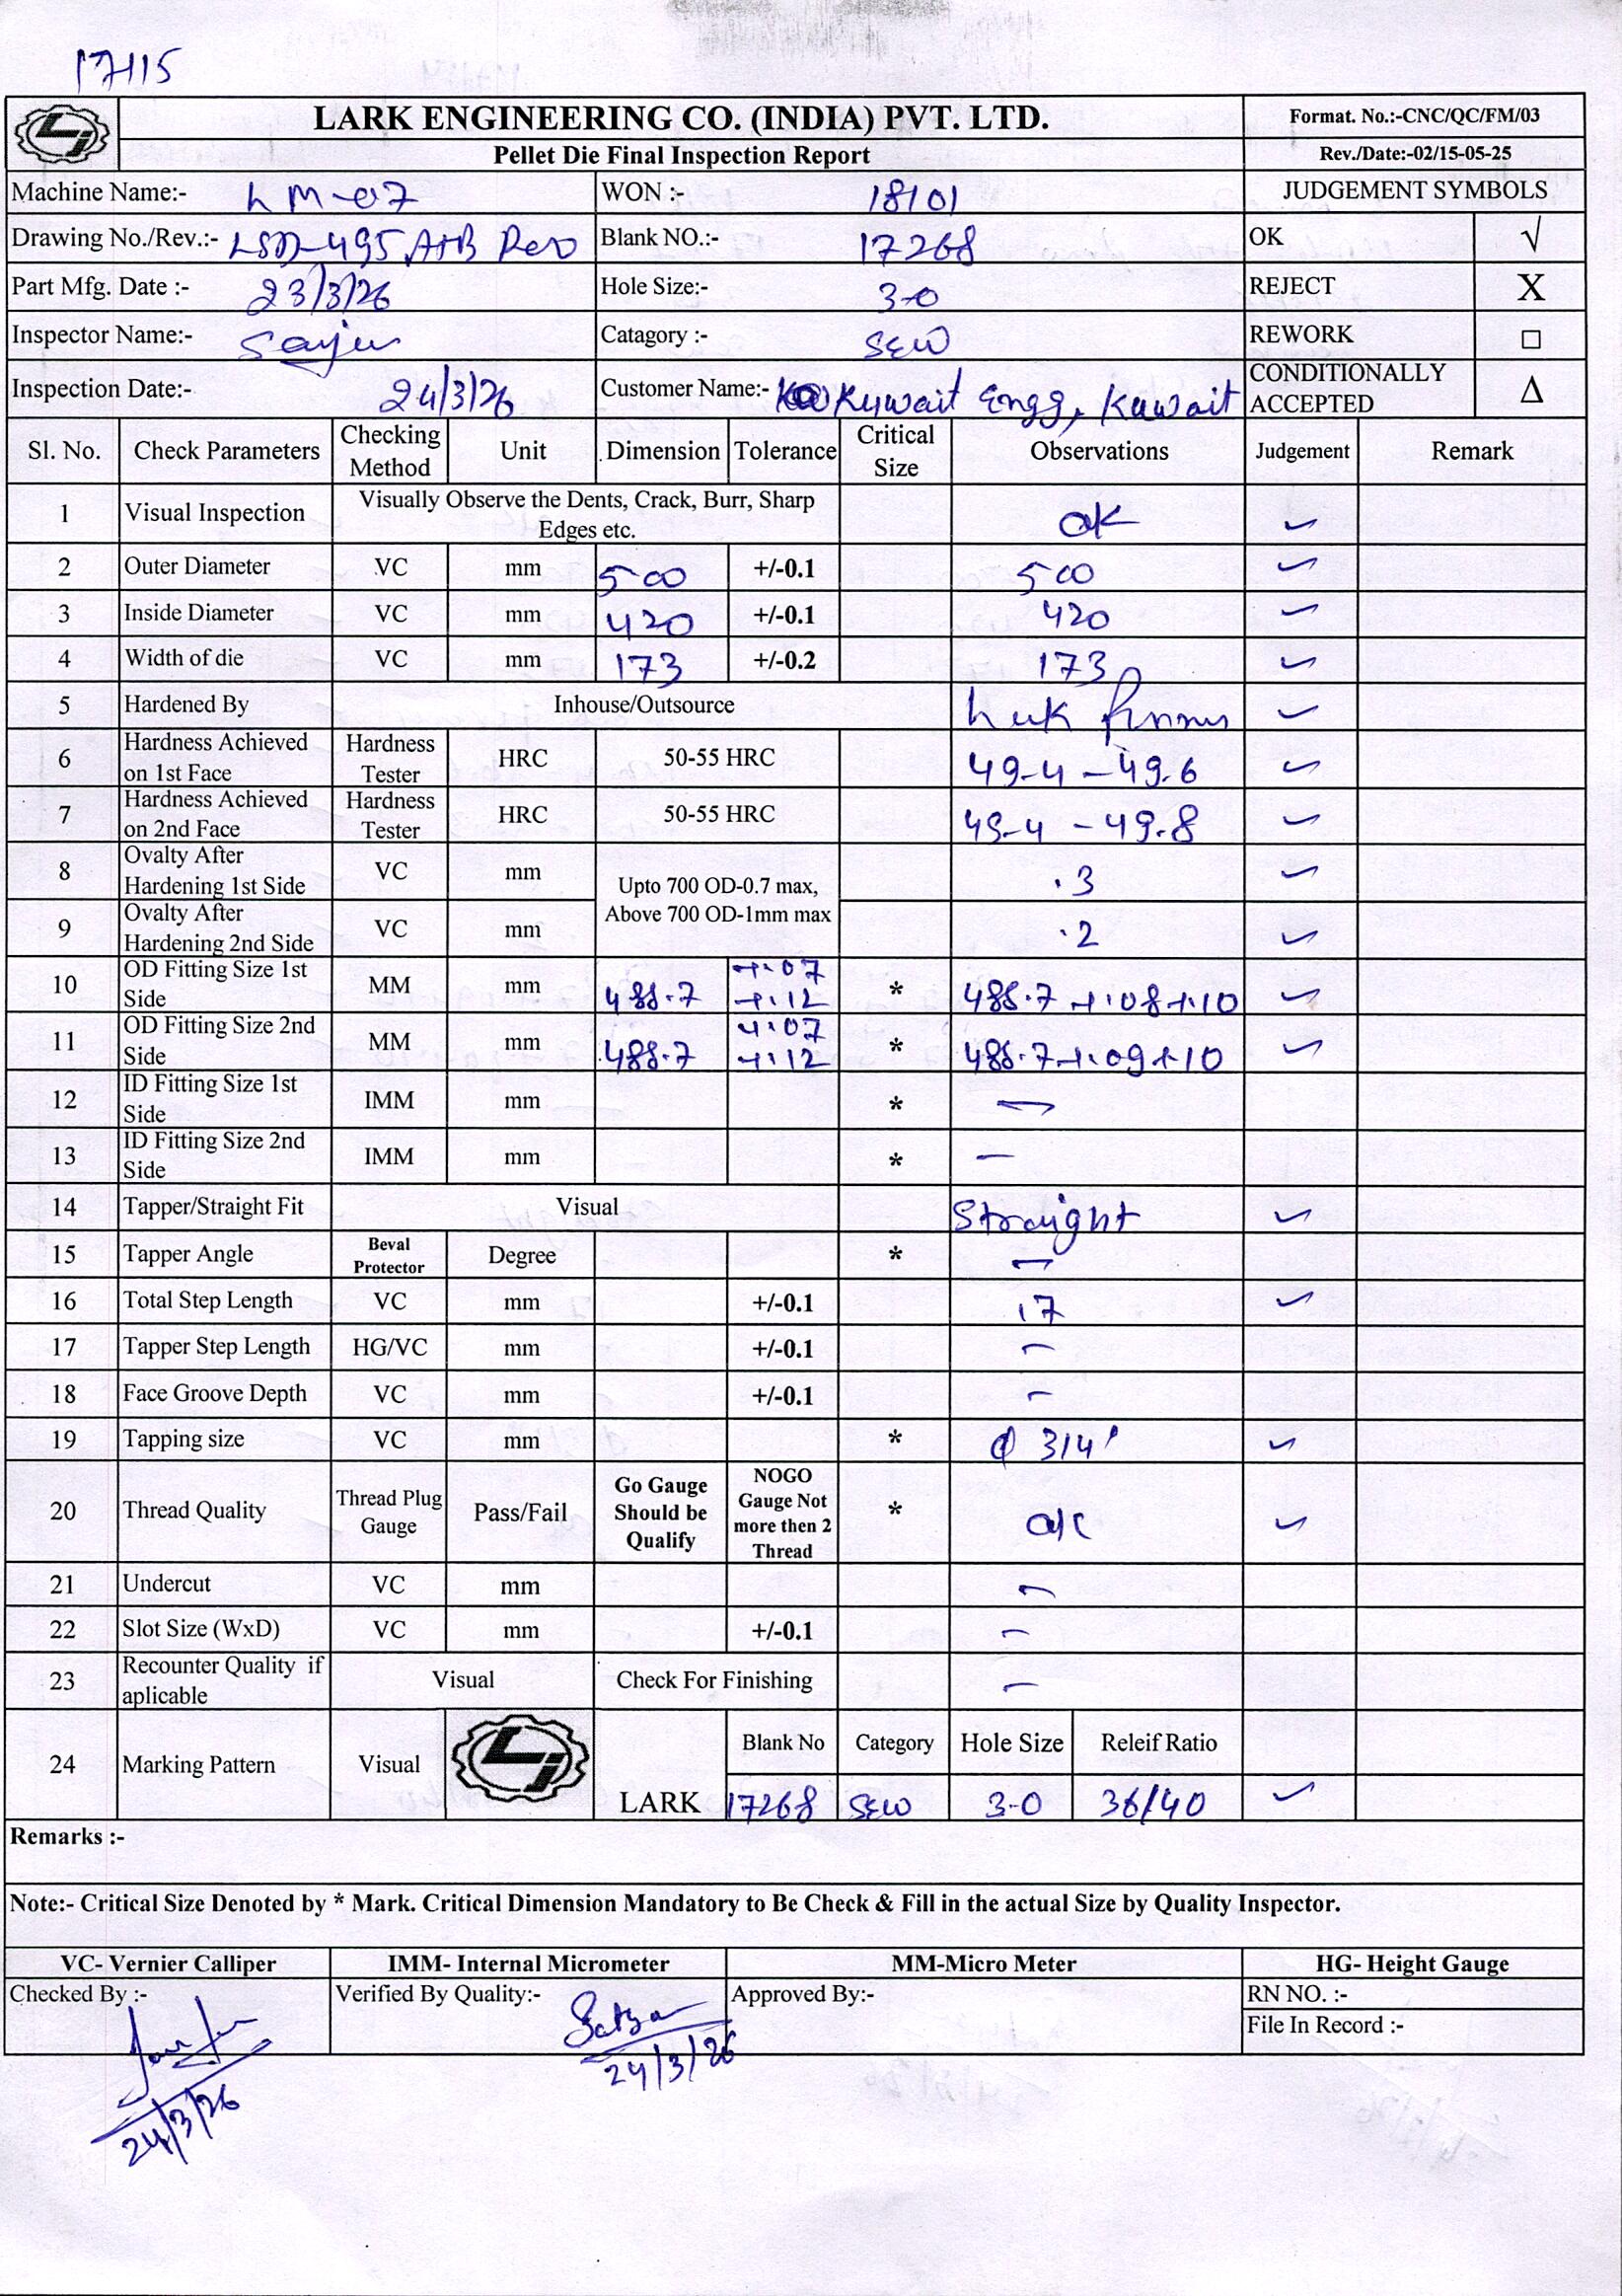 17115
LARK ENGINEERING CO. (INDIA) PVT. LTD.
Format. No.:-CNC/QC/FM/03
Pellet Die Final Inspection Report
Rev./Date:-02/15-05-25
Machine Name:- LM-07 WON :- 18101 JUDGEMENT SYMBOLS
Drawing No./Rev.:- LSD-495 A+B Rev0 Blank NO.:- 17268 OK √
Part Mfg. Date :- 23/3/26 Hole Size:- 3-0 REJECT X
Inspector Name:- Catagory :- SEW REWORK □
Inspection Date:- 24/3/26 Customer Name:- Kuwait Engg, Kuwait CONDITIONALLY ACCEPTED Δ
Sl. No. Check Parameters Checking Method Unit Dimension Tolerance Critical Size Observations Judgement Remark
1 Visual Inspection Visually Observe the Dents, Crack, Burr, Sharp Edges etc. ok ✓
2 Outer Diameter VC mm 500 +/-0.1 500 ✓
3 Inside Diameter VC mm 420 +/-0.1 420 ✓
4 Width of die VC mm 173 +/-0.2 173 ✓
5 Hardened By Inhouse/Outsource ✓
6 Hardness Achieved on 1st Face Hardness Tester HRC 50-55 HRC 49-4 - 49.6 ✓
7 Hardness Achieved on 2nd Face Hardness Tester HRC 50-55 HRC 49-4 - 49.8 ✓
8 Ovalty After Hardening 1st Side VC mm Upto 700 OD-0.7 max, Above 700 OD-1mm max .3 ✓
9 Ovalty After Hardening 2nd Side VC mm .2 ✓
10 OD Fitting Size 1st Side MM mm 488.7 +.07 +.12 * 488.7 +.08+10 ✓
11 OD Fitting Size 2nd Side MM mm 488.7 +.07 +.12 * 488.7+.09+10 ✓
12 ID Fitting Size 1st Side IMM mm * —
13 ID Fitting Size 2nd Side IMM mm * —
14 Tapper/Straight Fit Visual Straight ✓
15 Tapper Angle Beval Protector Degree * —
16 Total Step Length VC mm +/-0.1 17 ✓
17 Tapper Step Length HG/VC mm +/-0.1 —
18 Face Groove Depth VC mm +/-0.1 —
19 Tapping size VC mm * φ 3/4" ✓
20 Thread Quality Thread Plug Gauge Pass/Fail Go Gauge Should be Qualify NOGO Gauge Not more then 2 Thread * ok ✓
21 Undercut VC mm —
22 Slot Size (WxD) VC mm +/-0.1 —
23 Recounter Quality if aplicable Visual Check For Finishing —
24 Marking Pattern Visual LARK Blank No Category Hole Size Releif Ratio
17268 SEW 3-0 36/40 ✓
Remarks :-
Note:- Critical Size Denoted by * Mark. Critical Dimension Mandatory to Be Check & Fill in the actual Size by Quality Inspector.
VC- Vernier Calliper IMM- Internal Micrometer MM-Micro Meter HG- Height Gauge
Checked By :- Verified By Quality:- Approved By:- RN NO. :-
File In Record :-
24/3/26 24/3/26